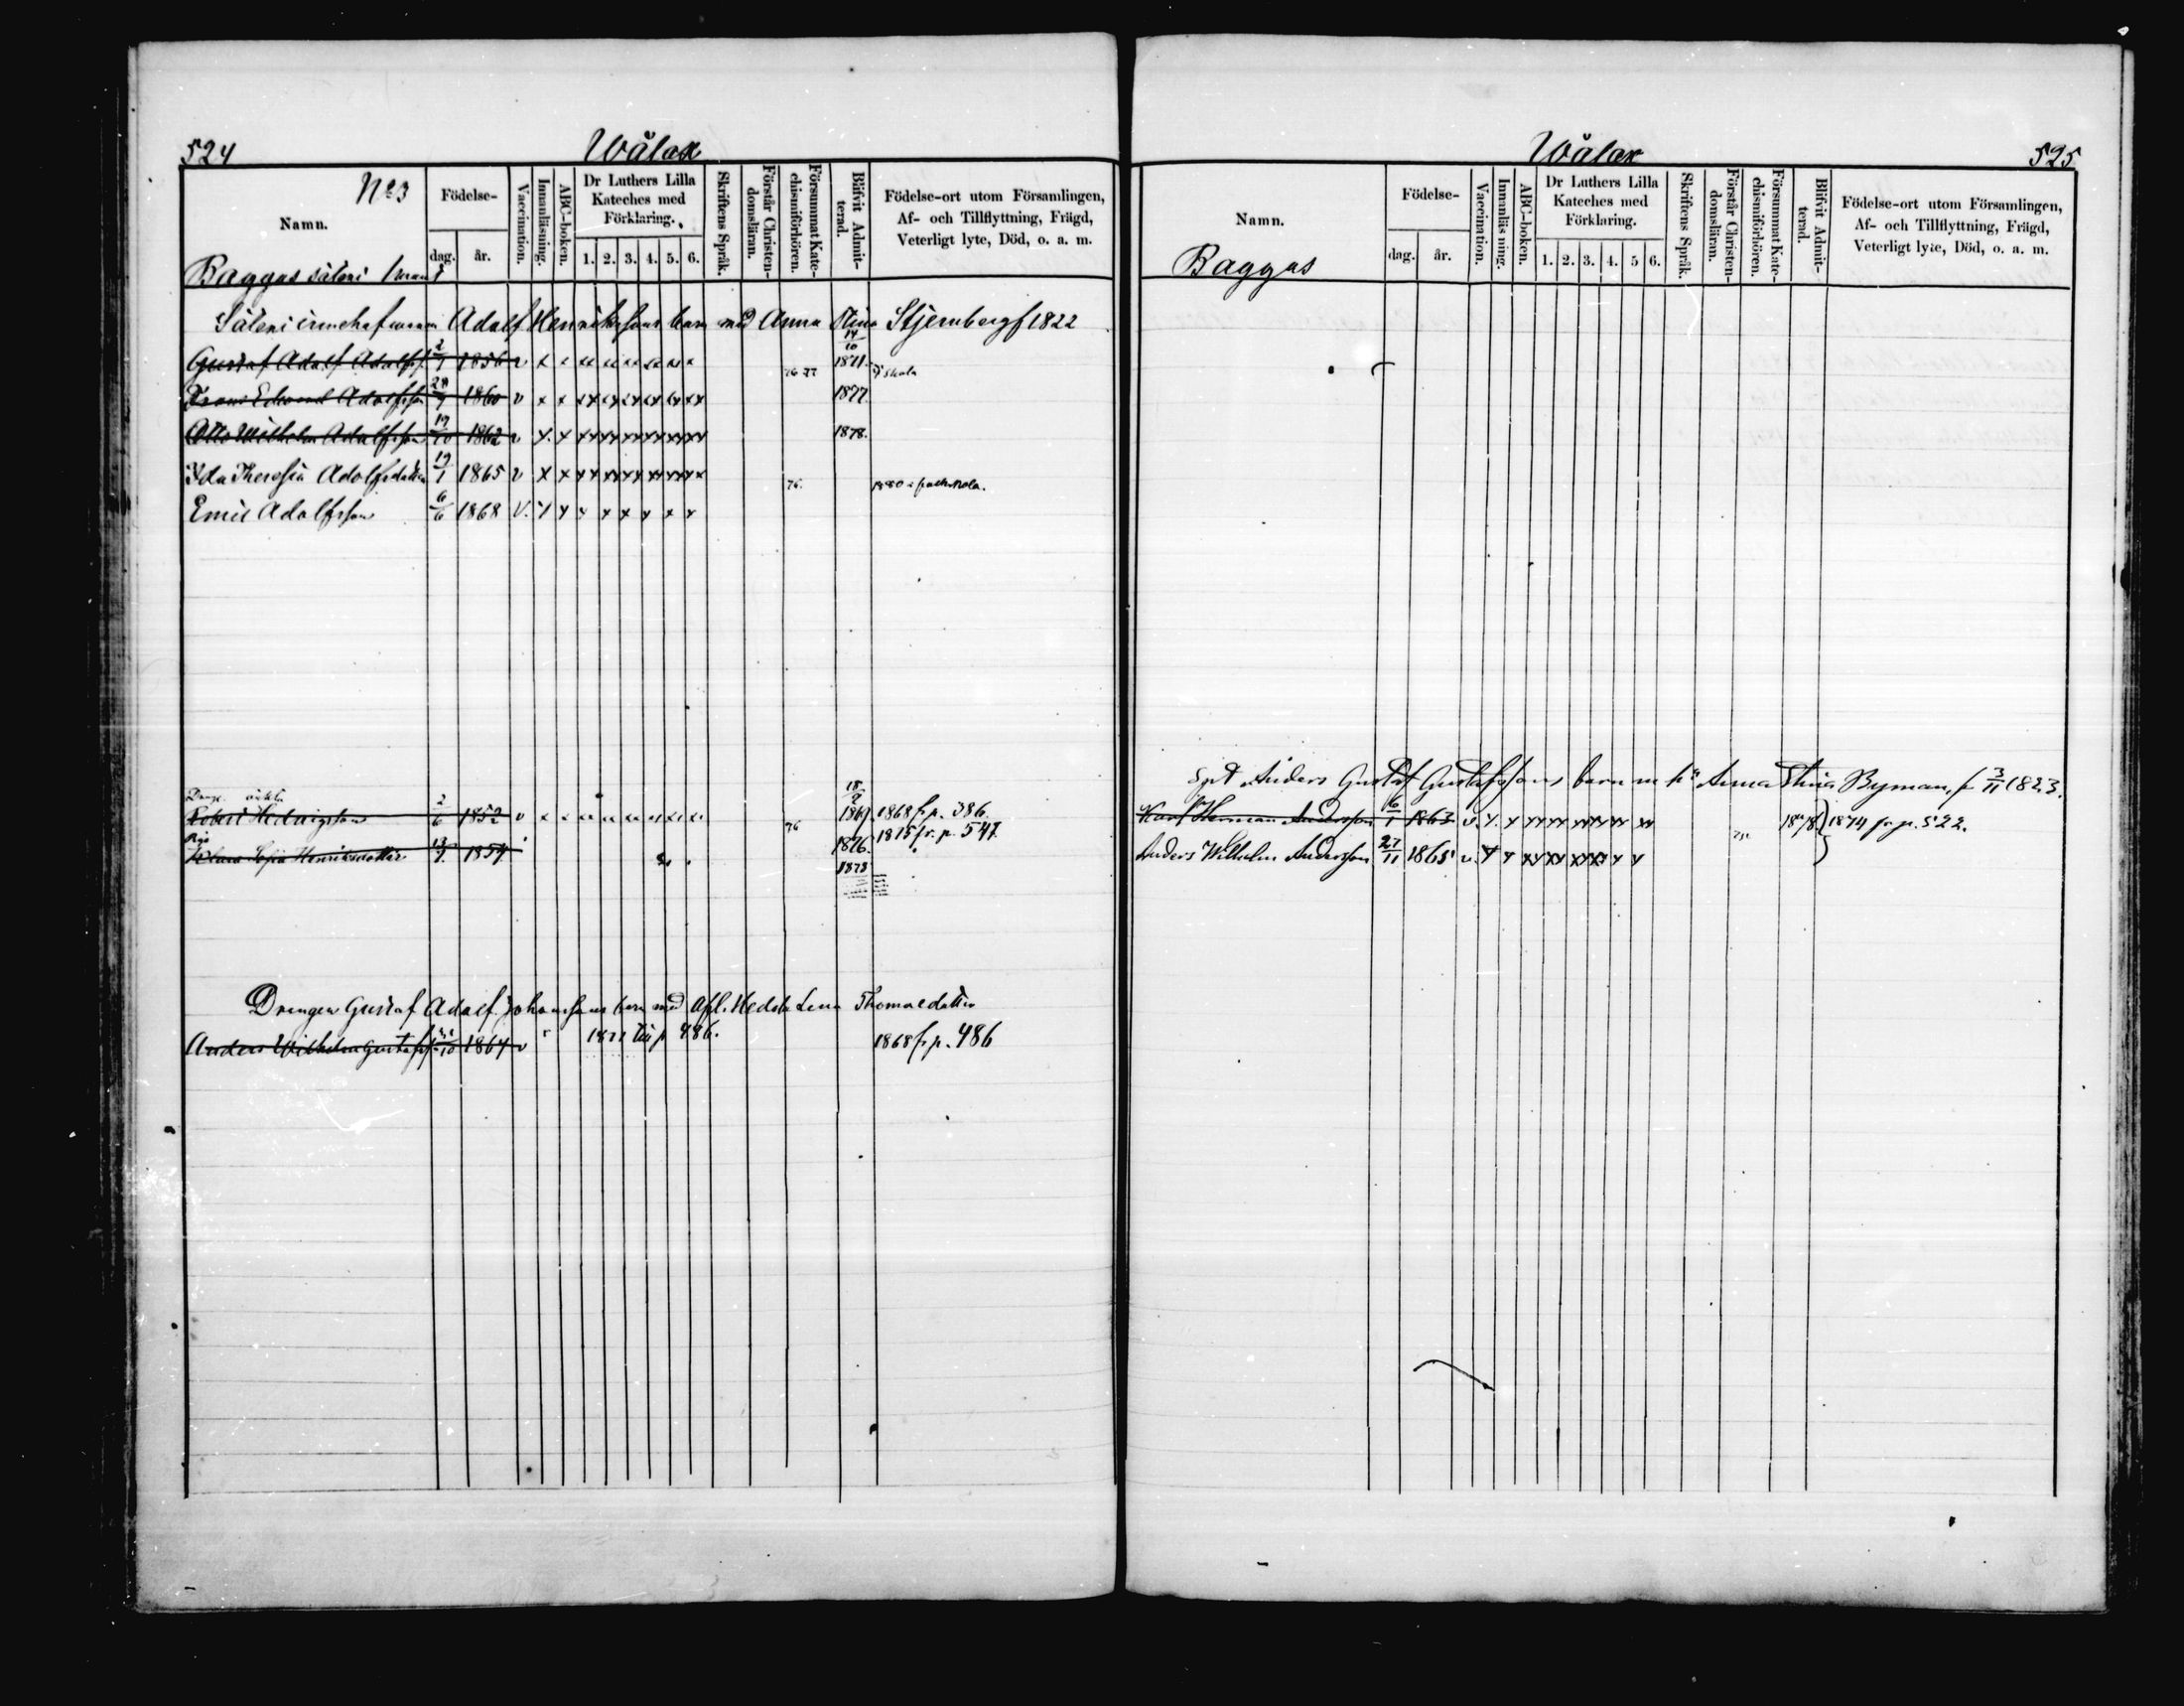 524
Wålax
Namn.
N:o 3
Födelse-
dag.
år.
Vaccination.
Innanläsning.
ABC-boken.
Dr Luthers Lilla
Kateches med
Förklaring.
1. 2. 3. 4. 5. 6.
Skriftens Språk.
Förstår Christen-
domsläran.
Försummat Kate-
chismiförhören.
Blifvit Admit-
terad.
Födelse-ort utom Församlingen,
Af- och Tillflyttning, Frägd,
Veterligt lyte, Död, o. a. m.
Baggas säteri 1 mant
Säteri innehafvaren Adolf Henrikssons barn med Anna Stina Stjernberg f 1822
Gustaf Adolf Adolfss. 2/9 1856 v x x 14/10 1871.
Frans Edvard Adolfsson 1860 v x x 76 77 1877 i skola
Otto Wilhelm Adolfsson 19/10 1862 v x x 1878.
Ida Theresia Adolfsdotter 19/1 1865 v x x
Emil Adolfsson 6/6 1868 V. x x x x x x x x 76. 1880 i folkskola.
Dreng
Robert Hedvigsson 2/6 1852 v x x 18/9 1869. 1868 fr p. 386.
Pig
Klara Sofia Henriksdotter 1859 76 1876. 1875 fr. p. 547.
1878
Drengen Gustaf Adolf Johanssons barn med Afl. Hedda Lena Thomasdotter
Anders Wilhelm Gustafs. 1864 v 1872 till p 486. 1868 fr p. 486
Wålax
525
Namn.
Födelse-
dag.
år.
Vaccination.
Innanläsning.
ABC-boken.
Dr Luthers Lilla
Kateches med
Förklaring.
1. 2. 3. 4. 5 6.
Skriftens Språk.
Förstår Christen-
domsläran.
Försummat Kate-
chismiförhören.
Blifvit Admit-
terad.
Födelse-ort utom Församlingen,
Af- och Tillflyttning, Frägd,
Veterligt lyte, Död, o. a. m.
Baggas
Anders Gustaf Gustafssons barn m h:u Anna Stina Byman, f 3/11 1823.
Karl Herman Andersson 6/1 1863 v. x. x xx xx xx xx xx xx 1878 } 1874 fr p. 522.
Anders Wilhelm Andersson 27/11 1865 v. x x xx xx xx xx x x